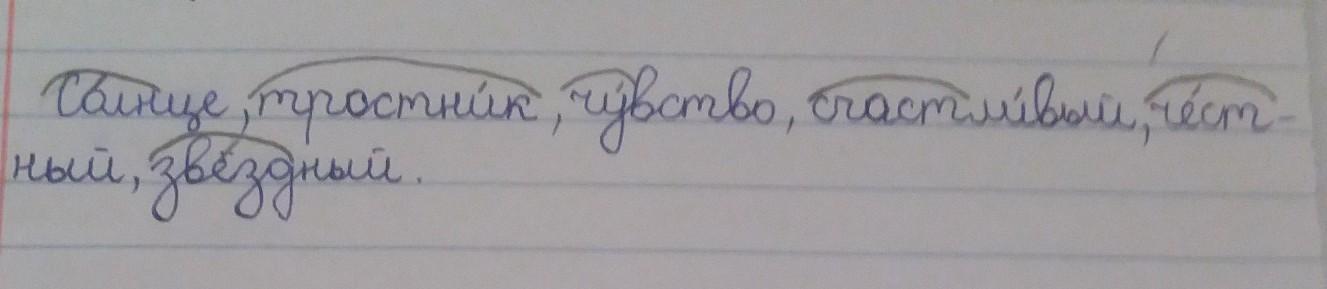 Солнце, тростник, чувство, счастливый, чест-
ный, звёздный.